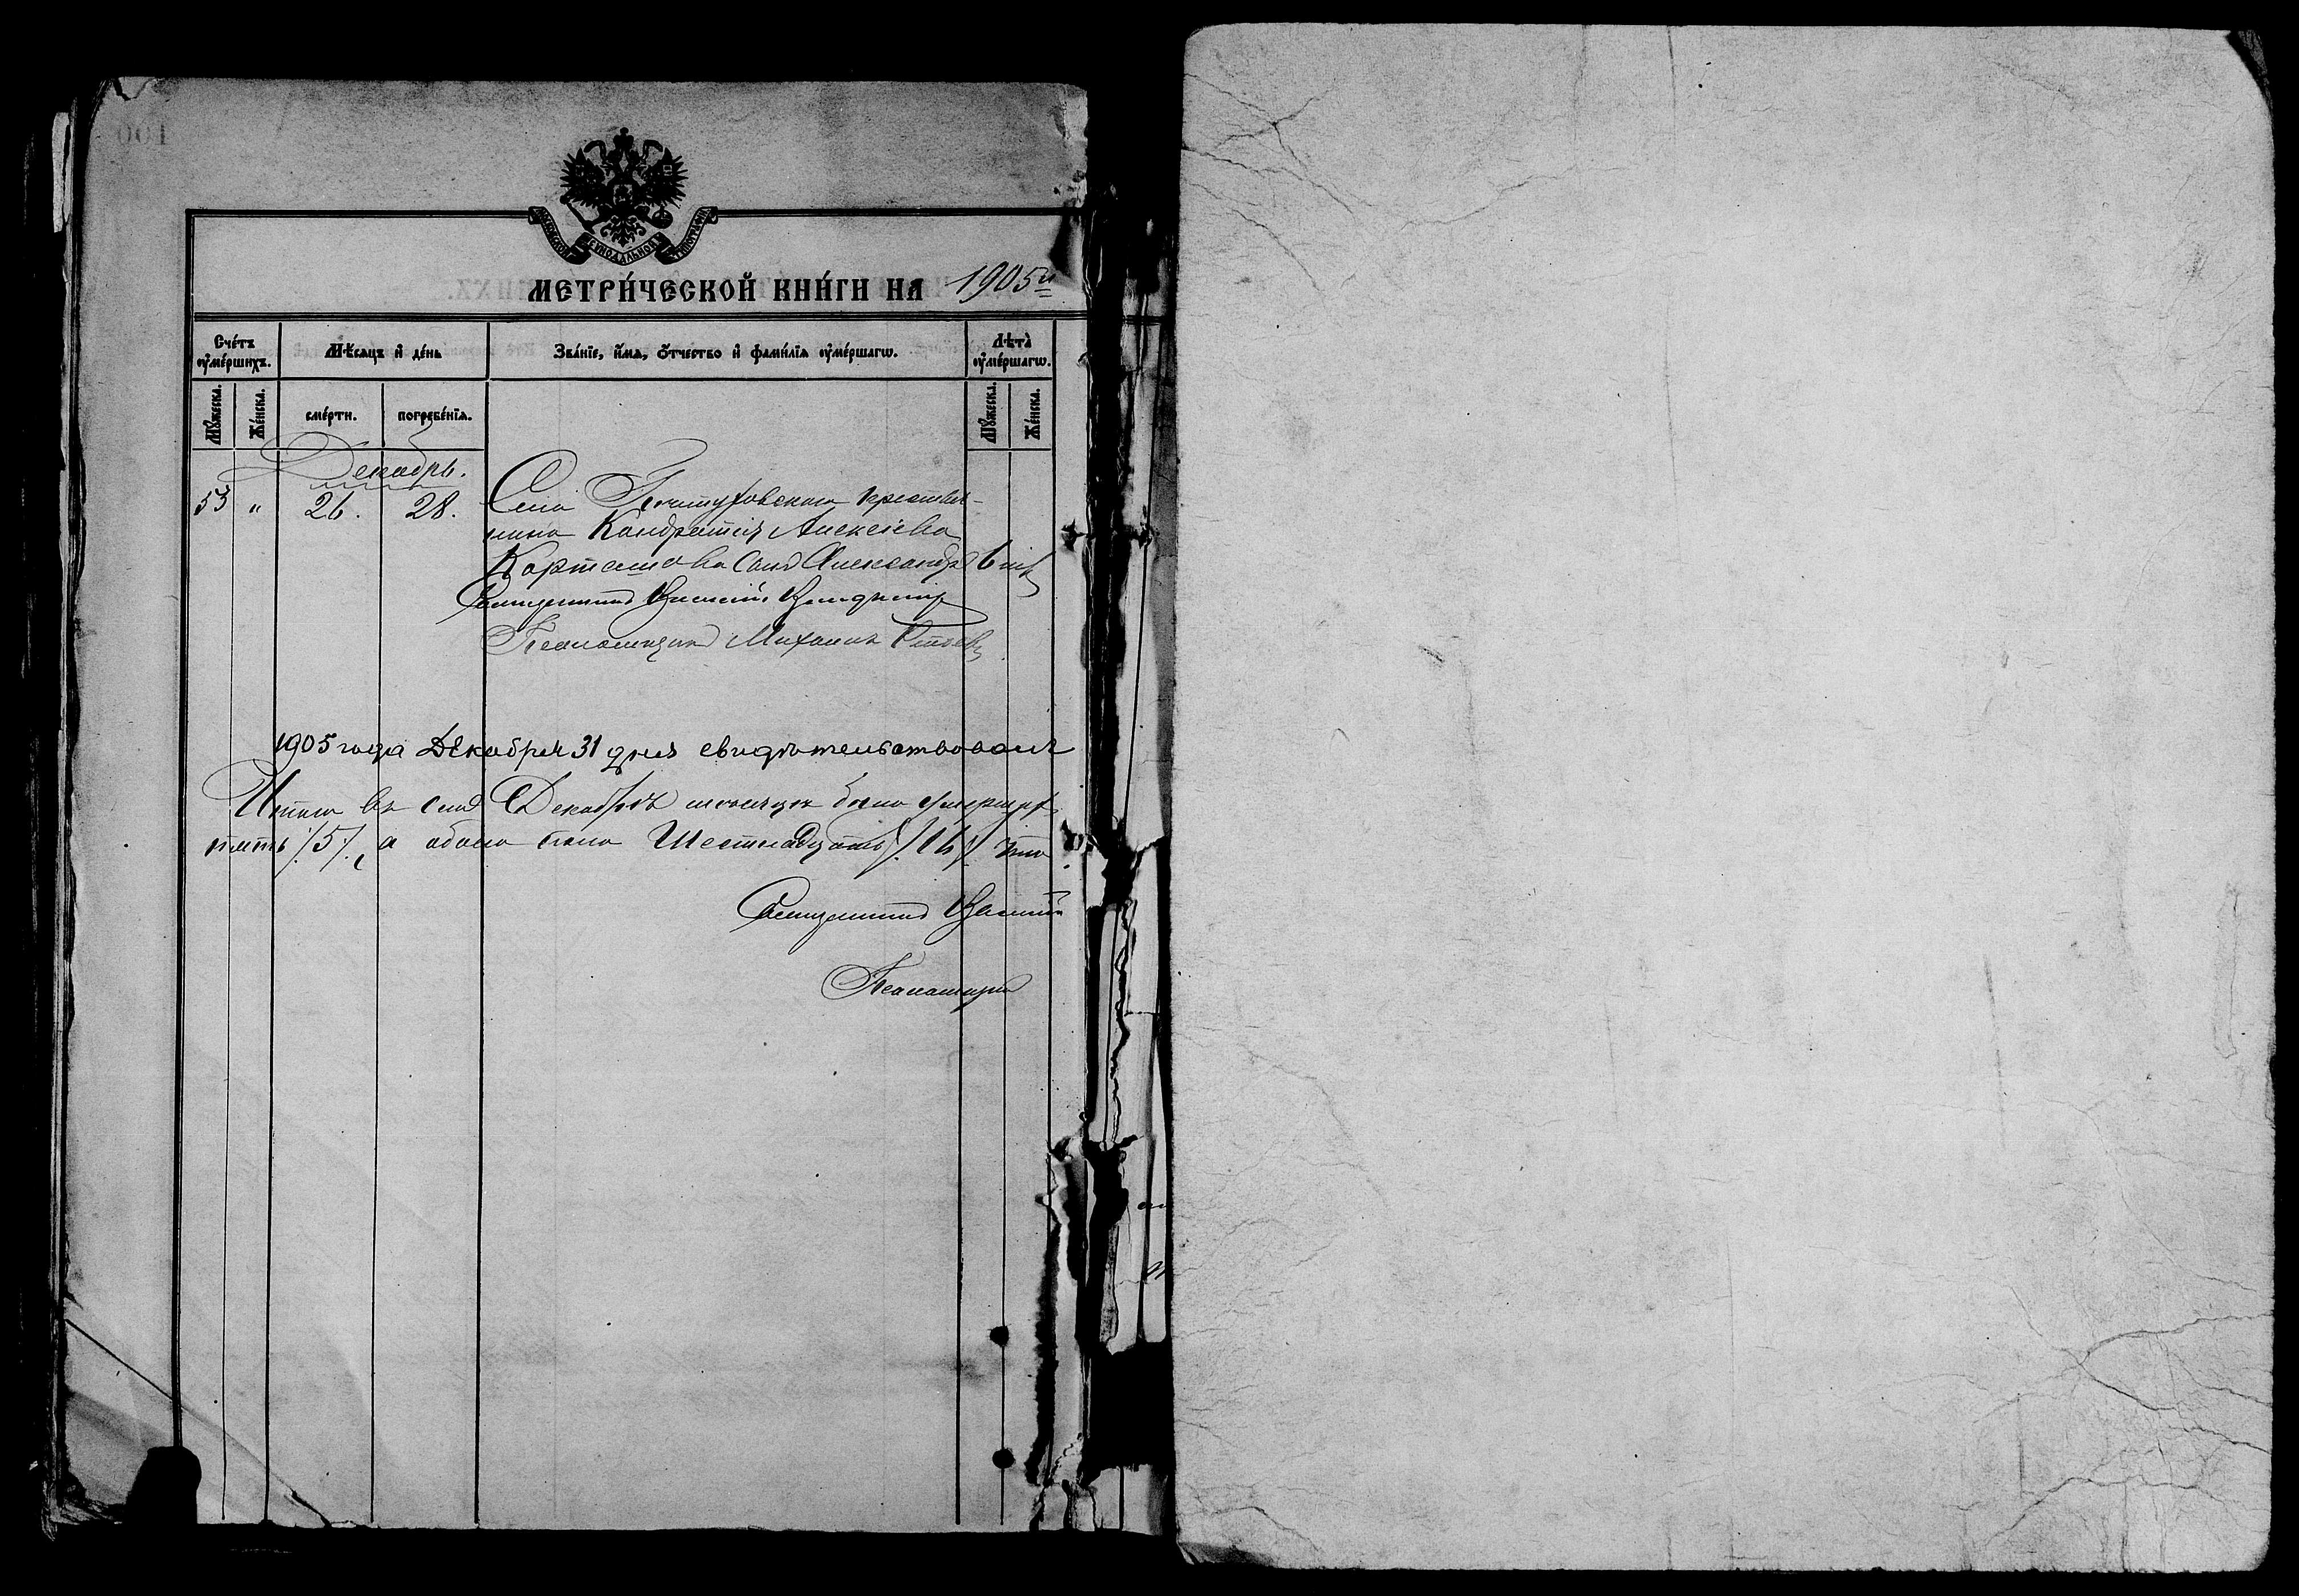 МОСКОВСКОЙ СѴНОДАЛЬНОЙ ТИПОГРАФІИ
МЕТРИ́ЧЕСКОЙ КНИ́ГИ НА 1905й
Сче́тъ ᲂу҆ме́ршихъ.
Мѣ́сяцъ и҆ де́нь
Зва́нїе, и҆́мѧ, ѻ҆́тчество и҆ фами́лїѧ ᲂу҆ме́ршагѡ.
Лѣ̀та ᲂу҆ме́ршагѡ.
Мꙋ́жеска.
Же́нска.
сме́рти.
погребе́нїѧ.
Мꙋ́жеска.
Же́нска.
Декабрь.
53 " 26. 28. Села крестья-
нина Кондратія Алексіева
Карташова сынъ Александръ 6
Священникъ Василій
Псаломщикъ Михаилъ
1905 года Декабря 31 дня свидѣтельствовали
Итого въ семъ Декабрѣ мѣсяцѣ было умершихъ
пять /5/, а обоего пола Шестнадцать /16/
Священникъ Василій
Псаломщикъ